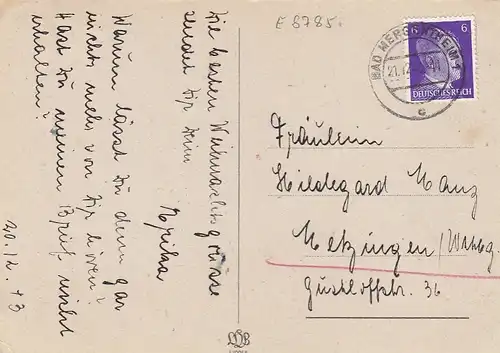 E 8785.
BAD MERGENTHEIM
21.12
c
6 6
DEUTSCHES REICH
Fräulein
Hildegard Manz
Metzingen/Wttbg.
Gustloffstr. 36
Die besten Weihnachtsgrüsse
sendet Dir Dein
Warum lässt Du denn gar
nichts mehr von Dir hören?
Hast Du meinen Brief nicht
erhalten?
20.12.43